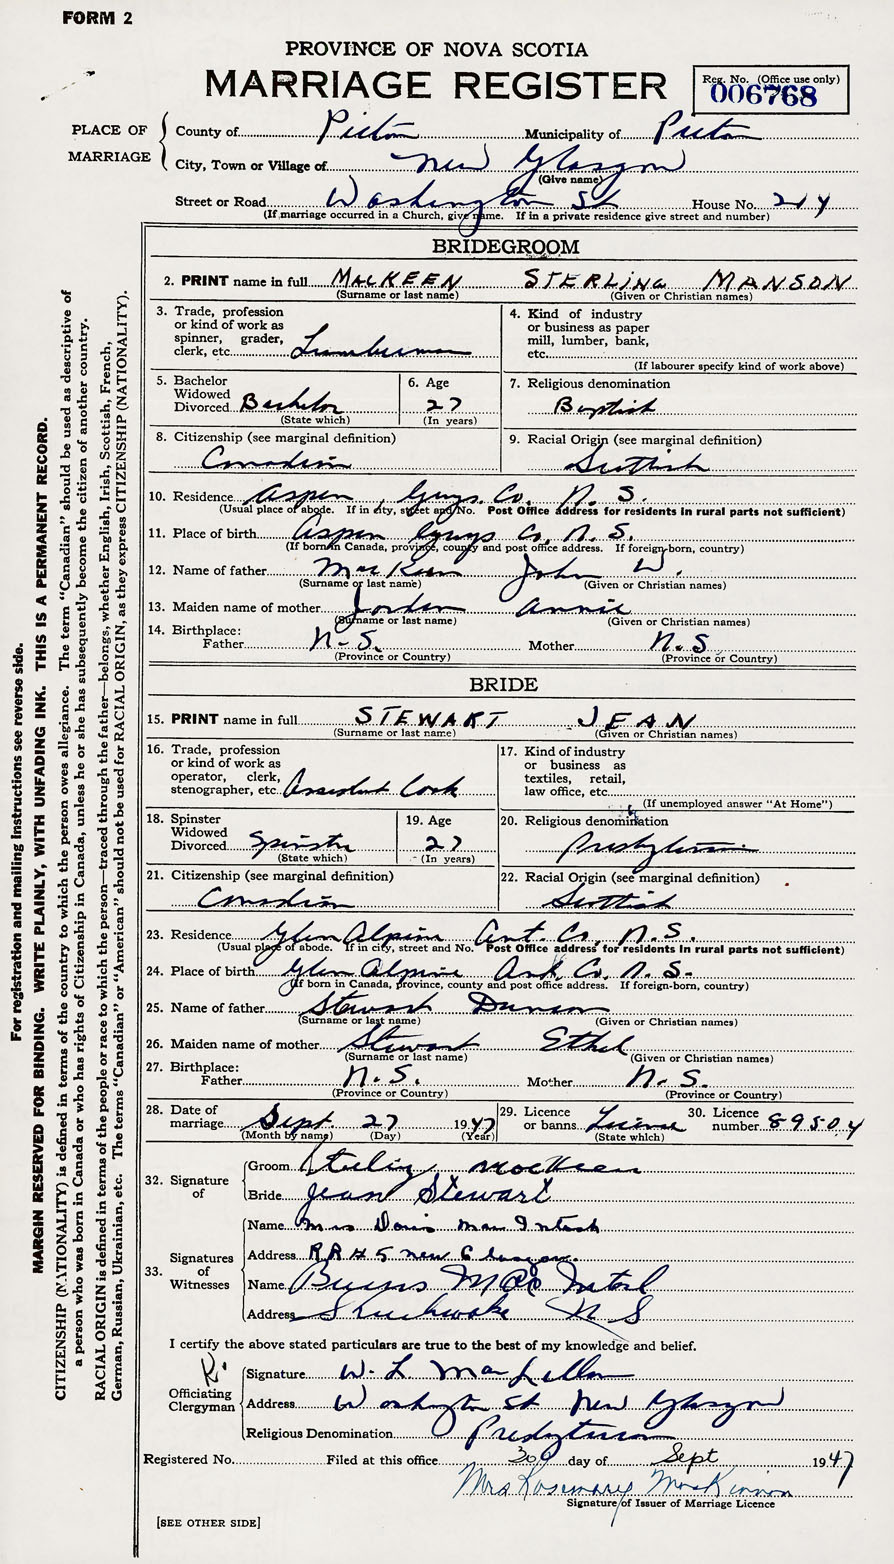 FORM 2
PROVINCE OF NOVA SCOTIA
MARRIAGE REGISTER
Reg. No. (Office use only)
006768
PLACE OF MARRIAGE
County of Pictou Municipality of Pictou
City, Town or Village of New Glasgow
(Give name)
Street or Road Washington St House No.
(If marriage occurred in a Church, give name. If in a private residence give street and number)
BRIDEGROOM
2. PRINT name in full MACKEEN STERLING MANSON
(Surname or last name) (Given or Christian names)
3. Trade, profession or kind of work as spinner, grader, clerk, etc. Lumberman
4. Kind of industry or business as paper mill, lumber, bank, etc.
(If labourer specify kind of work above)
5. Bachelor Widowed Divorced Bachelor
(State which)
6. Age 27
(In years)
7. Religious denomination Baptist
8. Citizenship (see marginal definition) Canadian
9. Racial Origin (see marginal definition) Scottish
10. Residence Aspen, Guys. Co, N. S.
(Usual place of abode. If in city, street and No. Post Office address for residents in rural parts not sufficient)
11. Place of birth Aspen Guys Co, N. S.
(If born in Canada, province, county and post office address. If foreign-born, country)
12. Name of father MacKeen John W.
(Surname or last name) (Given or Christian names)
13. Maiden name of mother Jordan Annie
(Surname or last name) (Given or Christian names)
14. Birthplace:
Father N-S. Mother N. S.
(Province or Country) (Province or Country)
BRIDE
15. PRINT name in full STEWART JEAN
(Surname or last name) (Given or Christian names)
16. Trade, profession or kind of work as operator, clerk, stenographer, etc. Assistant Cook
17. Kind of industry or business as textiles, retail, law office, etc.
(If unemployed answer "At Home")
18. Spinster Widowed Divorced Spinster
(State which)
19. Age 27
(In years)
20. Religious denomination Presbyterian
21. Citizenship (see marginal definition) Canadian
22. Racial Origin (see marginal definition) Scottish
23. Residence Glen Alpine Ant. Co, N.S.
(Usual place of abode. If in city, street and No. Post Office address for residents in rural parts not sufficient)
24. Place of birth Glen Alpine Ant. Co, N. S.
(If born in Canada, province, county and post office address. If foreign-born, country)
25. Name of father Stewart Duncan
(Surname or last name) (Given or Christian names)
26. Maiden name of mother Stewart Ethel
(Surname or last name) (Given or Christian names)
27. Birthplace:
Father N. S. Mother N. S.
(Province or Country) (Province or Country)
28. Date of marriage Sept 27 1947
(Month by name) (Day) (Year)
29. Licence or banns License
(State which)
30. Licence number 89504
32. Signature of
Groom Sterling MacKeen
Bride Jean Stewart
33. Signatures of Witnesses
Name Mrs Doris MacIntosh
Address R R # 5 New Glasgow.
Name Burns MacIntosh
Address N S
I certify the above stated particulars are true to the best of my knowledge and belief.
Officiating Clergyman
Signature W. L. MacLellan
Address Washington St New Glasgow
Religious Denomination Presbyterian
Registered No. Filed at this office 30 day of Sept 1947
Mrs Rosemary MacKinnon
Signature of Issuer of Marriage Licence
[SEE OTHER SIDE]
For registration and mailing instructions see reverse side.
MARGIN RESERVED FOR BINDING. WRITE PLAINLY, WITH UNFADING INK. THIS IS A PERMANENT RECORD.
CITIZENSHIP (NATIONALITY) is defined in terms of the country to which the person owes allegiance. The term "Canadian" should be used as descriptive of
a person who was born in Canada or who has rights of Citizenship in Canada, unless he or she has subsequently become the citizen of another country.
RACIAL ORIGIN is defined in terms of the people or race to which the person—traced through the father—belongs, whether English, Irish, Scottish, French,
German, Russian, Ukrainian, etc. The terms "Canadian" or "American" should not be used for RACIAL ORIGIN, as they express CITIZENSHIP (NATIONALITY).